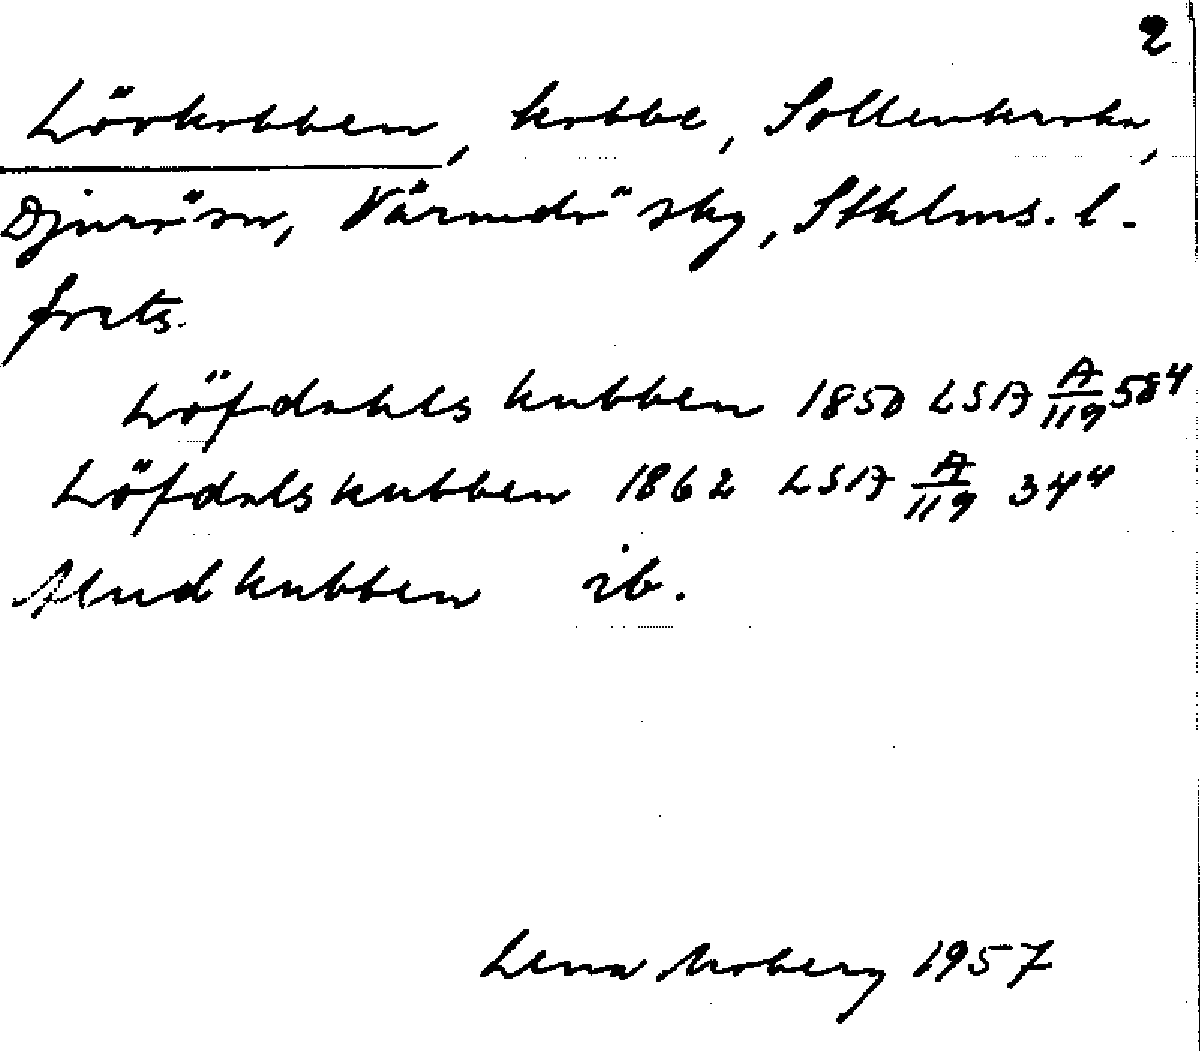 2
Lövkobben, kobbe, Sollenkroka,
Djurö sn, Värmdö sky, Sthlms. l.
forts.
Löfdahls kubben 1850 LSA A/119 58⁴
Löfdalskubben 1862 LSA A/119 34⁴
Alludkubben ib.
Lena Moberg 1957